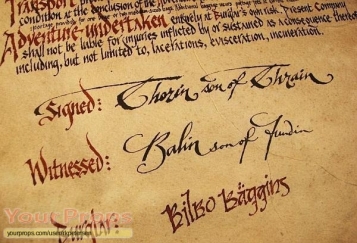 Transport
condition at the conclusion of the Adventure
Adventure undertaken entirely at Burglar's own risk. Present Company
shall not be liable for injuries inflicted by or sustained as a consequence thereof
including, but not limited to, lacerations, evisceration, incineration.
Signed: Thorin son of Thrain
Witnessed: Balin son of Fundin
Burglar: Bilbo Baggins
YourProps
yourprops.com